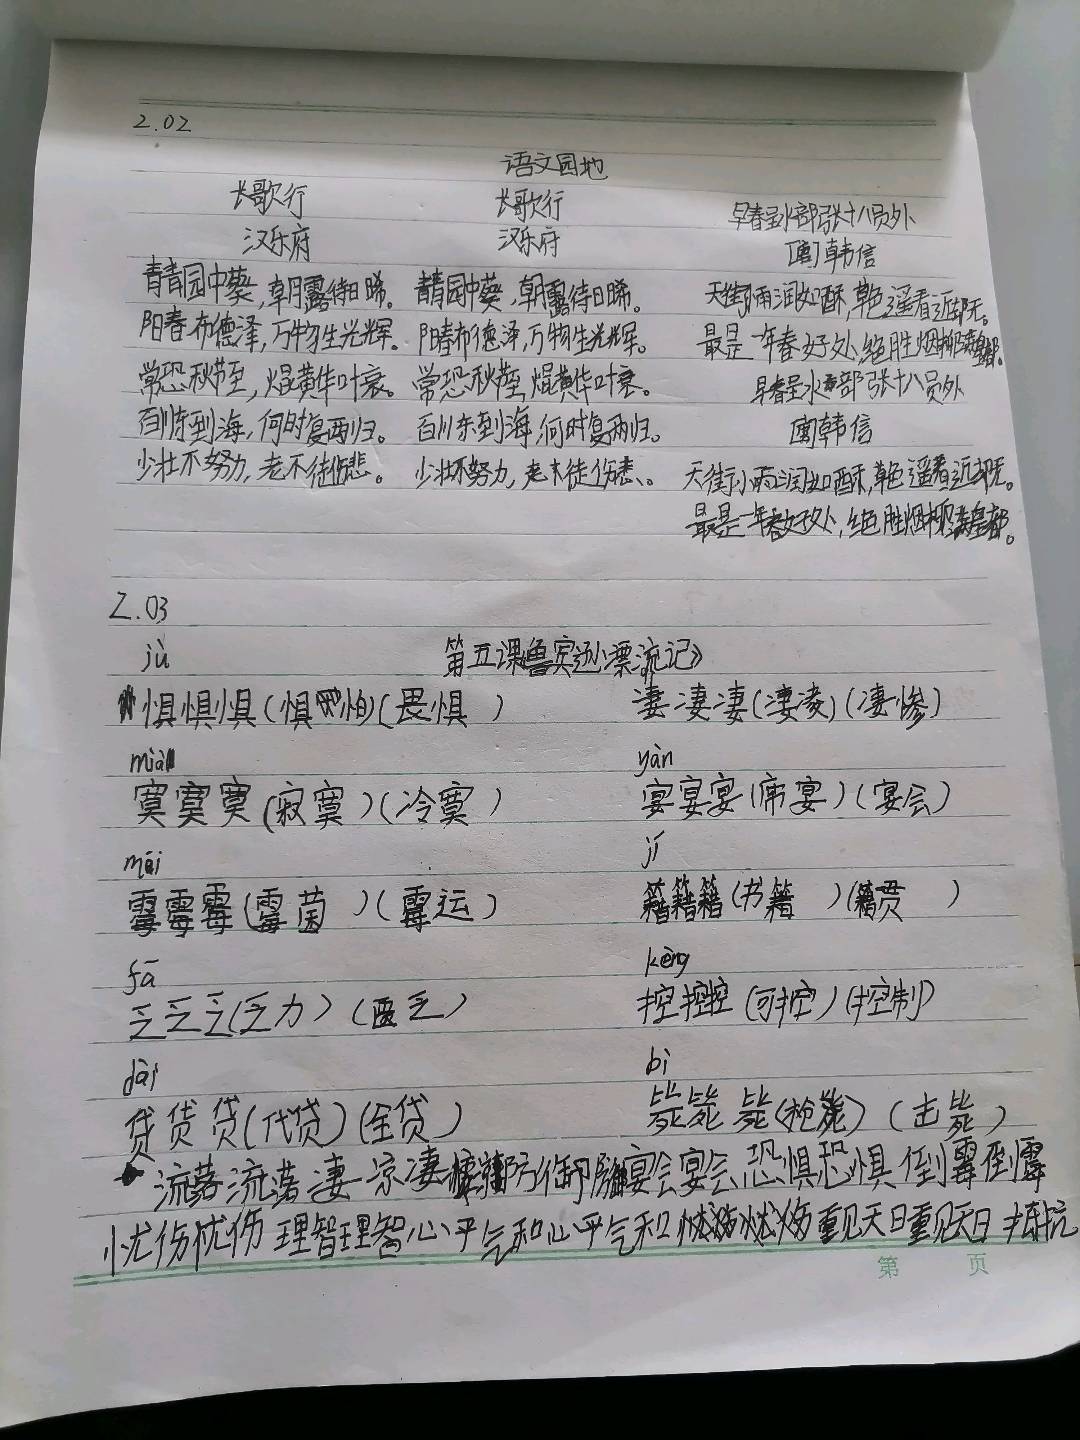 2.02
语文园地
长歌行 长歌行 早春呈水部张十八员外
汉乐府 汉乐府 [唐]韩信
青青园中葵，朝露待日晞。 青青园中葵，朝露待日晞。 天街小雨润如酥，草色遥看近却无。
阳春布德泽，万物生光辉。 阳春布德泽，万物生光辉。 最是一年春好处，绝胜烟柳满皇都。
常恐秋节至，焜黄华叶衰。 常恐秋节至，焜黄华叶衰。 早春呈水部张十八员外
百川东到海，何时复西归。 百川东到海，何时复西归。 [唐]韩信
少壮不努力，老不徒伤悲。 少壮不努力，老大徒伤悲。 天街小雨润如酥，草色遥看近却无。
最是一年春好处，绝胜烟柳满皇都。
2.03
jù 第五课《鲁宾逊漂流记》
惧惧惧(惧怕)(畏惧) 凄凄凄(凄凌)(凄惨)
yàn
寞寞寞(寂寞)(冷寞) 宴宴宴(席宴)(宴会)
jí
霉霉霉(霉菌)(霉运) 籍籍籍(书籍)(籍贯)
fā
乏乏乏(乏力)(匮乏) 控控控(可控)(控制)
dài bì
贷贷贷(代贷)(全贷) 毙毙毙(枪毙)(击毙)
流落流落凄凉凄凉防御防御宴会宴会恐惧恐惧倒霉倒霉
忧伤忧伤理智理智心平气和心平气和重见天日重见天日
第 页